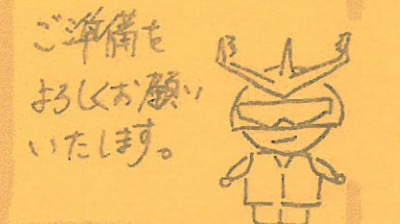 ご準備を
よろしくお願い
いたします。